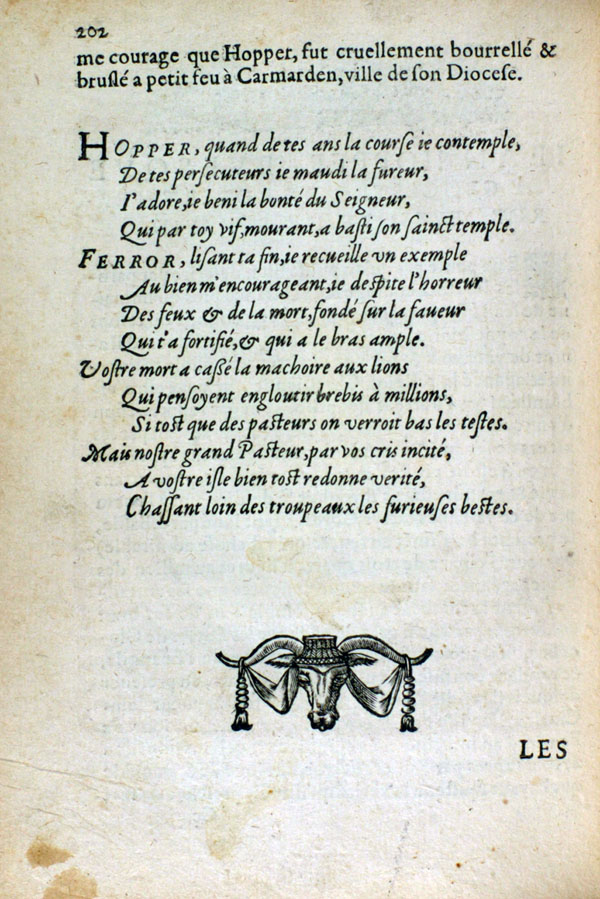 202
me courage que Hopper, fut cruellement bourrellé &
bruſlé a petit feu à Carmarden, ville de ſon Dioceſe.
HOPPER, quand de tes ans la courſe ie contemple,
De tes perſecuteurs ie maudi la fureur,
I'adore, ie beni la bonté du Seigneur,
Qui par toy vif, mourant, a baſti ſon ſainct temple.
FERROR, liſant ta fin, ie recueille vn exemple
Au bien m'encourageant, ie deſpite l'horreur
Des feux & de la mort, fondé ſur la faueur
Qui t'a fortifié, & qui a le bras ample.
Voſtre mort a caßé la machoire aux lions
Qui penſoyent engloutir brebis à millions,
Si toſt que des paſteurs on verroit bas les teſtes.
Mais noſtre grand Paſteur, par vos cris incité,
A voſtre iſle bien toſt redonne verité,
Chaſſant loin des troupeaux les furieuſes beſtes.
LES